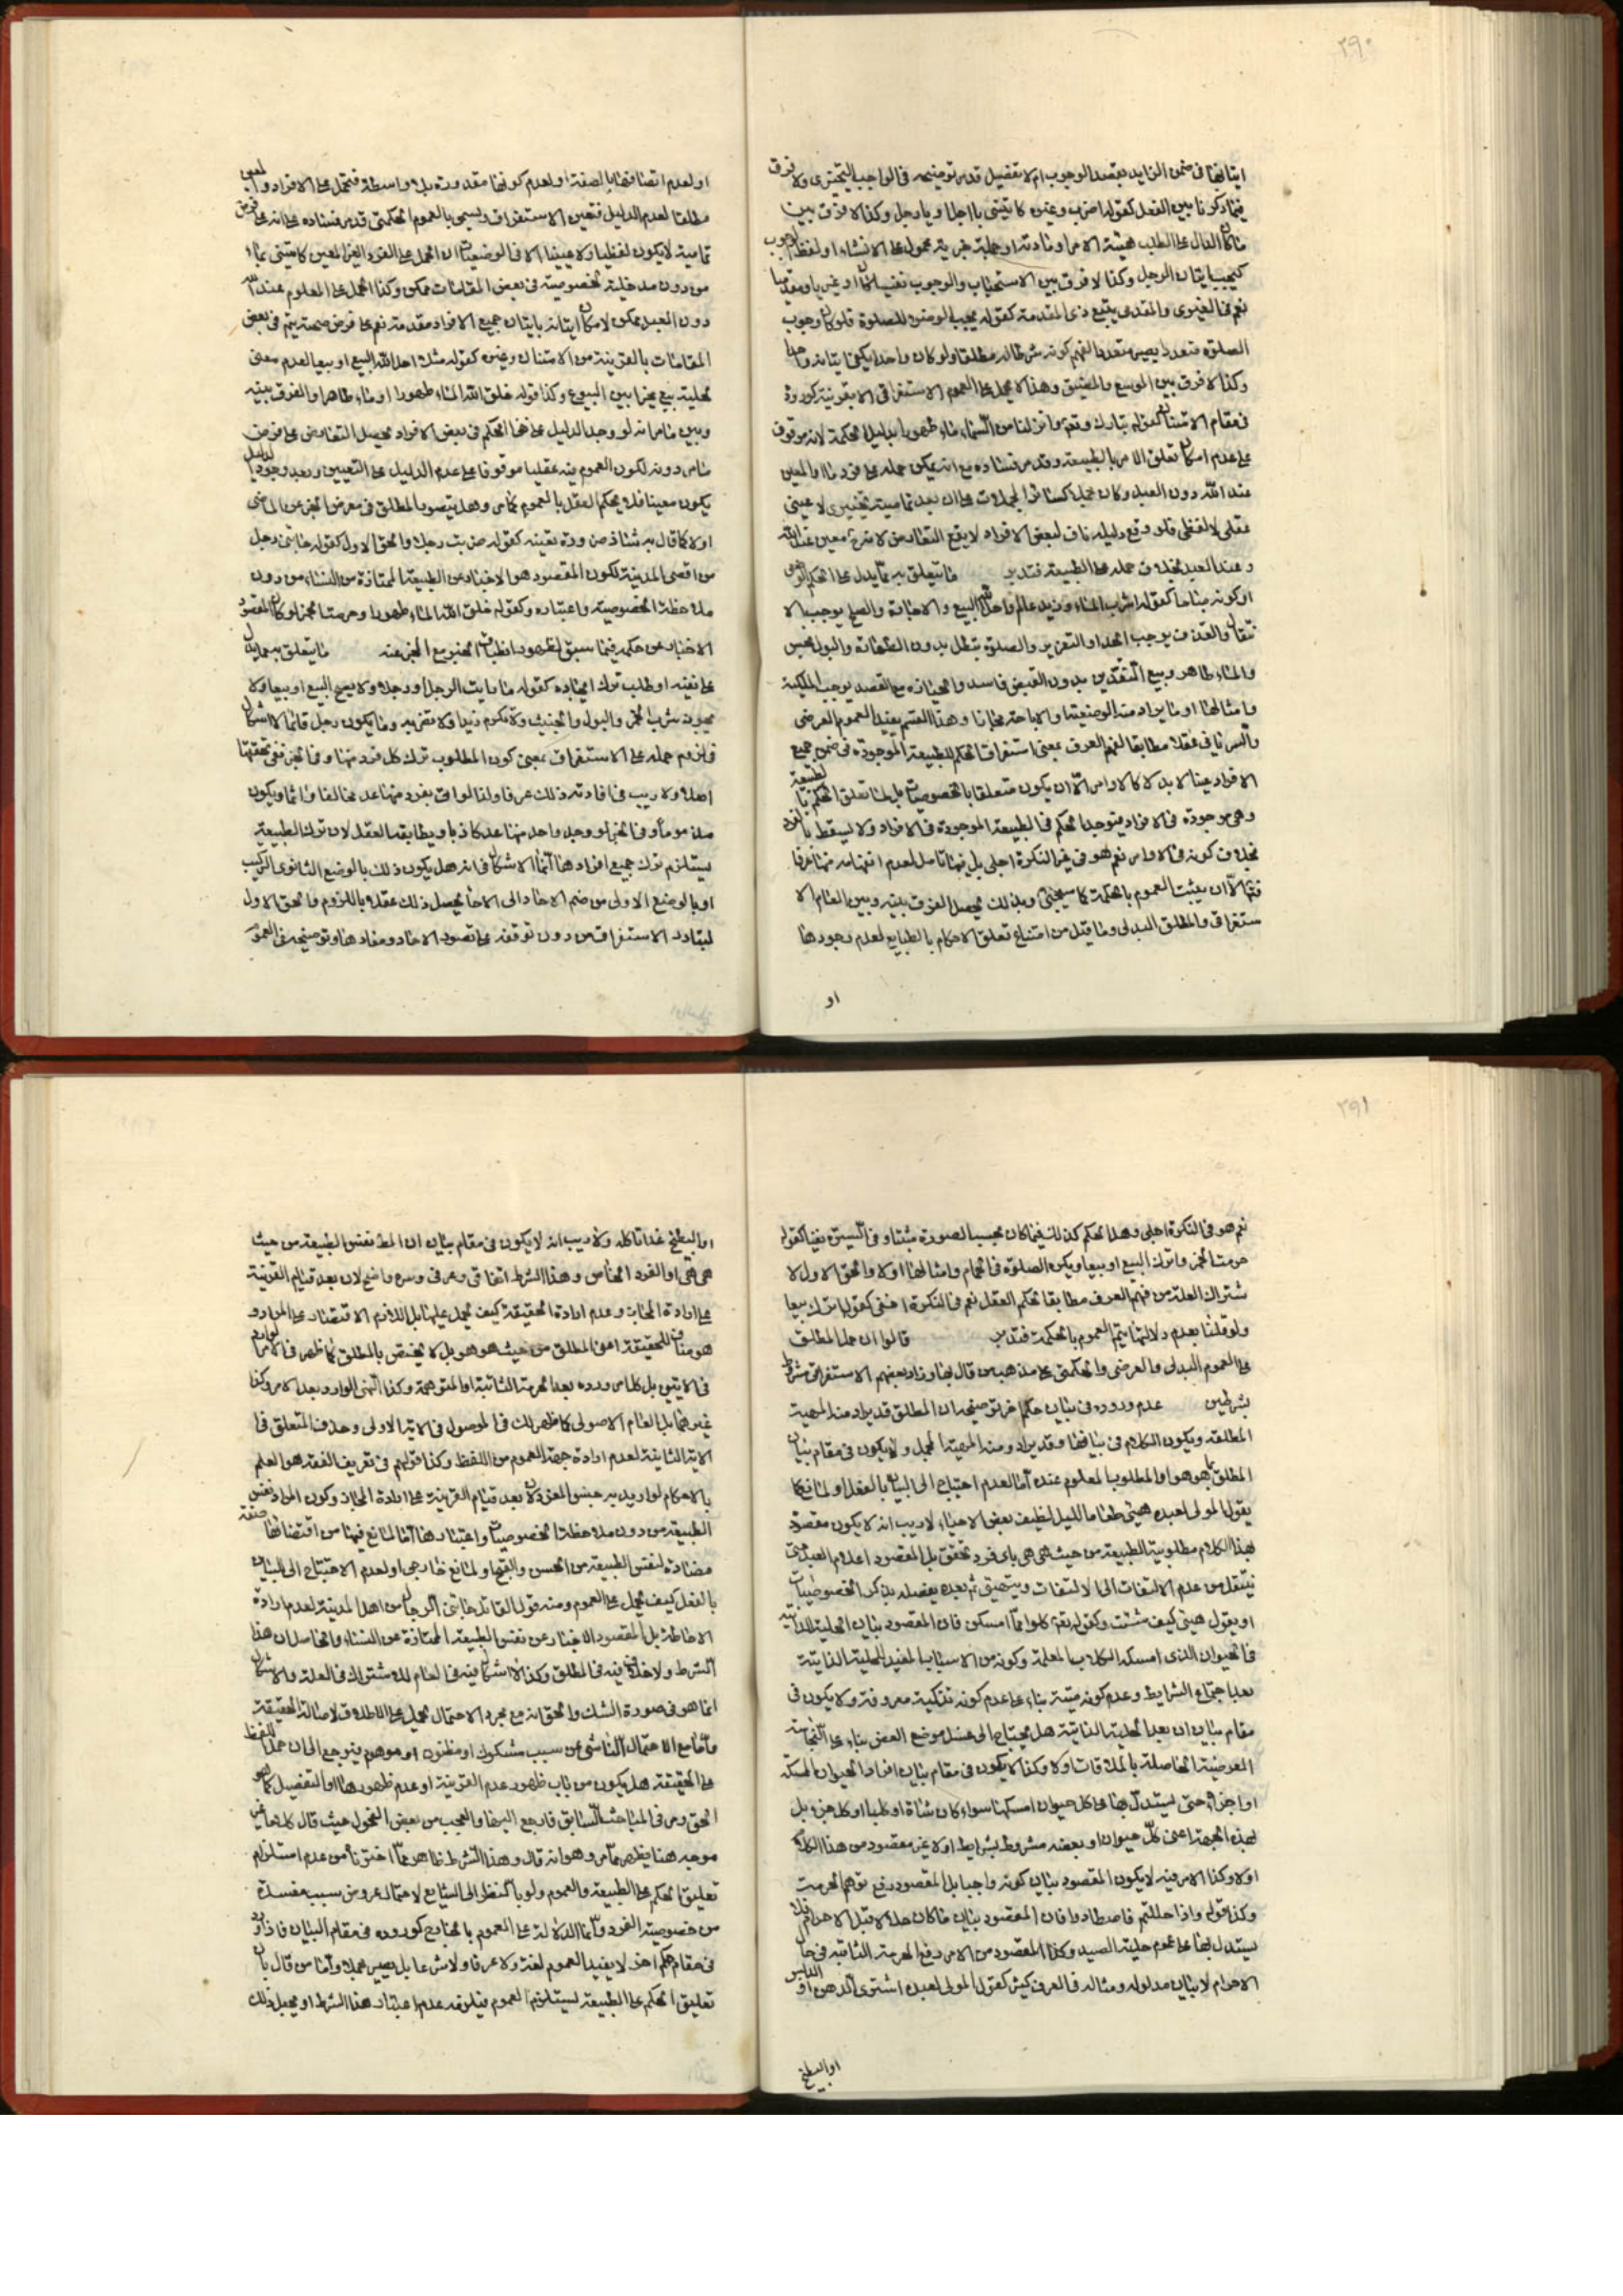 ٢٩٠
ايتانها في ضمن الزايد بقصد الوجوب ام لا تفضيل قد مر توضيحه في الواجب التخييري ولا فرق
فيما ذكرنا بين الفعل كقوله اضرب وغيره كايتني بااجلا ويا رجل وكذا لا فرق بين
ما كان الدال على الطلب هيئة الامر او مادته او جملة خبرية محمول على الانشاء او لفظ الوجوب
كيجب ايتان الرجل وكذا لا فرق بين الاستحباب والوجوب نفسيا كان او غيريا ومقدميا
نعم في الغيري والمقدمي يتبع ذي المقدمة كقوله يجب الوضوء للصلوة فلو كان وجوب
الصلوة متعددا يصير متعددا لفهم كونه شرطا له مطلقا ولو كان واحدا يكفي ايتانه واحدا
وكذا لا فرق بين الموسع والمضيق وهذا لا يحمل على العموم الاستغراقي الا بقرينة كوروده
في مقام الامتنان كقوله تبارك وتعالى وانزلنا من السماء ماء طهورا بدليل الحكمة لانه موقوف
على عدم امكان تعلق الامر بالطبيعة وقد مر فساده مع انه يمكن حمله على فرد ما او المعين
عند الله دون العبد وكان مجملا كسائر المجملات على ان بعد تماميته تخييري لا عيني
عقلي لا لفظي فلو وقع دليله ناف لبعض الافراد لا يقع التعارض لانه معين عند الله
وعند العبد بخلاف حمله على الطبيعة فتدبر ما يتعلق به مما يدل على الحكم الوضعي
او كونه مباحا كقوله اشرب الماء وزيد عالم واحل الله البيع والاجازة والصلح يوجب الا
نتقال والقذف يوجب الحد او التعزير والصلوة تبطل بدون الطهارة والبول نجس
والماء طاهر وبيع النقدين بدون القبض فاسد والحيازه مع القصد يوجب الملكية
وامثالها او ما يراد منه الوضعية والاباحة مجازا وهذا القسم يفيد العموم العرضي
والسرياني عقلا مطابقا لفهم العرف بمعنى استغراق الحكم للطبيعة الموجودة في ضمن جميع
الافراد عينا لا بدلا كالاوامر الا ان يكون متعلقا بالخصوصيات بل لما تعلق الحكم بالطبيعة
وهي موجودة في الافراد فيوجد الحكم في الطبيعة الموجودة في الافراد ولا يسقط بالفرد
بخلاف كونه في الاوامر نعم هو في غير النكرة اجلى بل فيها تامل لعدم انفهامه منها عرفا
فتم الا ان يثبت العموم بالحكمة كما سيجئ وبذلك يحصل الفرق بينه وبين العام الا
ستغراقي والمطلق البدلي وما قيل من امتناع تعلق الاحكام بالطبايع لعدم وجودها
او
او لعدم اتصافها بالصفة او لعدم كونها مقدورة بلا واسطة فتحمل على الافراد والبعض
مطلقا لعدم الدليل فتعين الاستغراق ويسمى بالعموم الحكمتي قد مر فساده على انه على فرض
تماميته لا يكون لفظيا ولا عينيا الا في الوضعيات ان الحمل على الفرد الغير المعين كايتني بماء
من دون مدخلية خصوصيته في بعض المقامات ممكن وكذا الحمل على المعلوم عند الله
دون العبد ممكن لامكان ايتانه بايتان جميع الافراد مقدمة نعم على فرض صحته يتم في بعض
المقامات بالقرينة من الامتنان وغيره كقوله مثلا احل الله البيع او بيعا لعدم معنى
لحلية بيع مخير بين البيوع وكذا قوله خلق الله الماء طهورا او ماء طاهرا والفرق بينه
وبين ما مر انه لو وجد الدليل على نفي الحكم في بعض الافراد يحصل التعارض على فرض
ما مر دونه لكون العموم فيه عقليا موقوفا على عدم الدليل على التعيين وبعد وجود الدليل
يكون معينا فلا يحكم العقل بالعموم كما مر وهل يتصور المطلق في معرض الخبر عن الماضي
اولا كما قال به شاذ من ورة تعينه كقوله ضربت رجلا والحق الاول كقوله جائني رجل
من اقصى المدينة لكون المقصود هو الاخبار عن الطبيعة الممتازة من النساء من دون
ملاحظة الخصوصية واعتباره وكقوله خلق الله الماء طهورا وحرمت الخمر لو كان المقصود
الاخبار عن حكمه فيما سبق لظهور انطباق الخبر مع المخبر عنه ما يتعلق به مما يدل
على نفيه او طلب ترك ايجاده كقوله ما رايت الرجل او رجلا ولا يصح البيع او بيعا ولا
يجوز شرب الخمر والبول والجنيث ولا تكرم زيدا ولا تضربه وما يكون رجل قائما لا اشكال
في لزوم حمله على الاستغراق بمعنى كون المطلوب ترك كل فرد منها وفي الخبر نفي تحققها
اصلا ولا ريب في افادته ذلك عرفا ولذا لو اتى بفرد منها عد مخالفا واثما ويكون
مذموما وفي الخبر لو وجد واحد منها عد كاذبا ويطابقه العقل لان ترك الطبيعة
يستلزم ترك جميع افرادها انما الاشكال في انه هل يكون ذلك بالوضع الثانوي التركيب
او بالوضع الاولى من ضم الاحاد الى الاحاد يحصل ذلك عقلا باللزوم والحق الاول
لتبادر الاستغراق من دون توقفه على تصور الاحاد ومفادها وتوضيحه في العموم
٢٩١
نعم هو في النكرة اجلى وهذا الحكم كذلك فيما كان بحسب الصورة مثبتا وفي السريرة نفيا كقوله
حرمت الخمر واترك البيع او بيعا ويكره الصلوة في الحمام وامثالها اولا والحق الاول لا
شتراك العلة من فهم العرف مطابقا لحكم العقل نعم في النكرة اخفى كقوله اترك بيعا
ولو قلنا بعدم دلالتها يتم العموم بالحكمة فتدبر قالوا ان حمل المطلق
على العموم البدلي والعرضي والحكمتي على مذهب من قال بها وزاد بعضهم الاستغراقي مشروط
بشرطين عدم وروده في بيان حكم اخر توضيحه ان المطلق قد يراد منه المهية
المطلقة ويكون الكلام في بيانها وقد يراد ومنه المهية المجمل ولا يكون في مقام بيان
المطلق بما هو هو او المطلوب المعلوم عنده اما لعدم احتياج الى البيان بالفعل او لمانع كما
يقول المولى لعبده هيئ طعاما الليل لضيف بعض الاحياء لا ريب انه لا يكون مقصوده
بهذا الكلام مطلوبية الطبيعة من حيث هي هي باي فرد تحقق بل المقصود اعلام العبد حتى
ينتقل من عدم الالتفات الى الالتفات ويتهيئ ثم بعده يفصله بذكر الخصوصيات
او يقول هيئ كيف شئت وكقوله تعالى كلوا مما امسكن فان المقصود بيان الحلية الذاتية
في الحيوان الذي امسكه الكلاب المعلمة وكونه من الاسباب المفيد للحلية الذاتية
بعد اجتماع الشرايط وعدم كونه ميتة بناء على عدم كونه تذكية معروفة ولا يكون في
مقام بيان ان بعد الحلية الذاتية هل يحتاج الى غسل موضع العض بناء على النجاسة
العرضية الحاصلة بالملاقات اولا وكذا لا يكون في مقام بيان افراد الحيوان الممسكة
او اجزائه حتى يستدل بها على كل حيوان امسكها سواء كان شاة او كلبا او كل جزء بل
لهذه الجهة اعني كل حيوان او بعضه مشروط بشرايط اولا غير مقصود من هذا الكلام
اولا وكذا الامر فيه لا يكون المقصود بيان كونه واجبا بل المقصود رفع توهم الحرمة
وكذا قوله واذا حللتم فاصطادوا فان المقصود بيان ما كان حلالا قبل الاحرام فلا
يستدل بها على عموم حلية الصيد وكذا المقصود من الامر رفع الحرمة الثابتة في حال
الاحرام لا بيان مدلوله ومثاله في العرف كثير كقول المولى لعبده اشترى الدهن او الدبس او
او البطيخ
او البطيخ غدا تاكله ولا ريب انه لا يكون في مقام بيان ان المط نفس الطبيعة من حيث
هي هي او الفرد الخاص وهذا الشرط اتفاقي وعرفي وسره واضح لان بعد قيام القرينة
على ارادة المجاز وعدم ارادة الحقيقة كيف يحمل عليها بل اللازم الاقتصار على الموارد
هو مناف للحقيقة اعني المطلق من حيث هو هو بل لا يختص بالمطلق كما ظهر في الامر الواقع
في الايتين بل كلما مر وروده بعد الحرمة الثابتة او المتوهمة وكذا النهي الوارد بعد الامر وكذا
غيرهما بل العام الاصولي كما ظهر لك في الموصول في الاية الاولى وحذف المتعلق في
الاية الثانية لعدم ارادة جهة العموم من اللفظ وكذا قولهم في تعريف الفقه هو العلم
بالاحكام لو اريد به جنس المعرف لان بعد قيام القرينة على ارادة المجاز وكون المراد نفس
الطبيعة من دون ملاحظة الخصوصيات واعتبارها اما لمانع فيها من اقتضائها صفة
مضادة لنفس الطبيعة من الحسن والقبح او لمانع خارجي او لعدم الاحتياج الى البيان
بالفعل كيف يحمل على العموم ومنه قول القائل جائني الرجال من اهل المدينة لعدم ارادة
الاحاطة بل المقصود الاخبار عن نفس الطبيعة الممتازة عن النساء والحاصل ان هذا
الشرط ولا خلاف فيه في المطلق وكذا لا اشكال فيه في العام للاشتراك في العلة والاشكال
انما هو في صورة الشك والحق انه مع مجرد الاحتمال يحمل على الاطلاق لاصالة الحقيقة
واما مع الاحتمال الناشي عن سبب مشكوك او مظنون او موهوم فيرجع الى ان حمل اللفظ
على الحقيقة هل يكون من باب ظهور عدم القرينة او عدم ظهورها او التفصيل كما هو
الحق ومر في المباحث السابق فارجع اليها والعجب من بعض الفحول حيث قال كلاما غير
موجه هنا يظهر مما مر وهو انه قال وهذا الشرط ظاهر مما اخترنا من عدم استلزام
تعليق الحكم على الطبيعة والعموم ولو بالنظر الى الشايع لاحتمال عروض سبب مفسدة
من خصوصية الفرد واما الدلالة على العموم بالخارج كوروده في مقام البيان فاذا ورد
في مقام حكم اخر لا يفيد العموم لغة ولا عرفا ولا شرعا بل يصير مجملا واما من قال بان
تعليق الحكم على الطبيعة يستلزم العموم فيلزمه عدم اعتبار هذا الشرط او يجعل ذلك